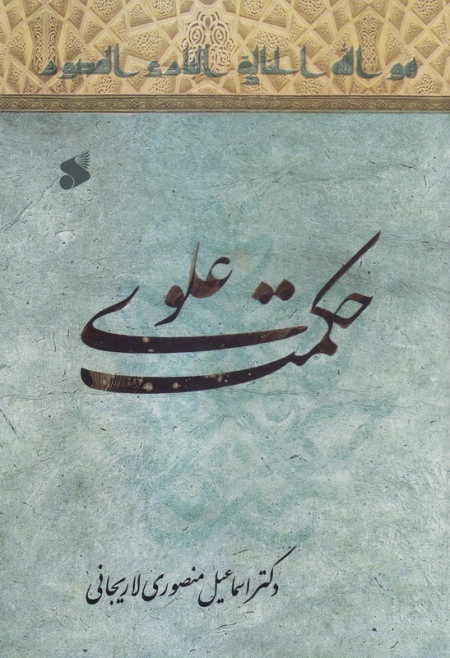 هو الله الخالق البارئ المصور
حکمت علوی
دکتر اسماعیل منصوری لاریجانی